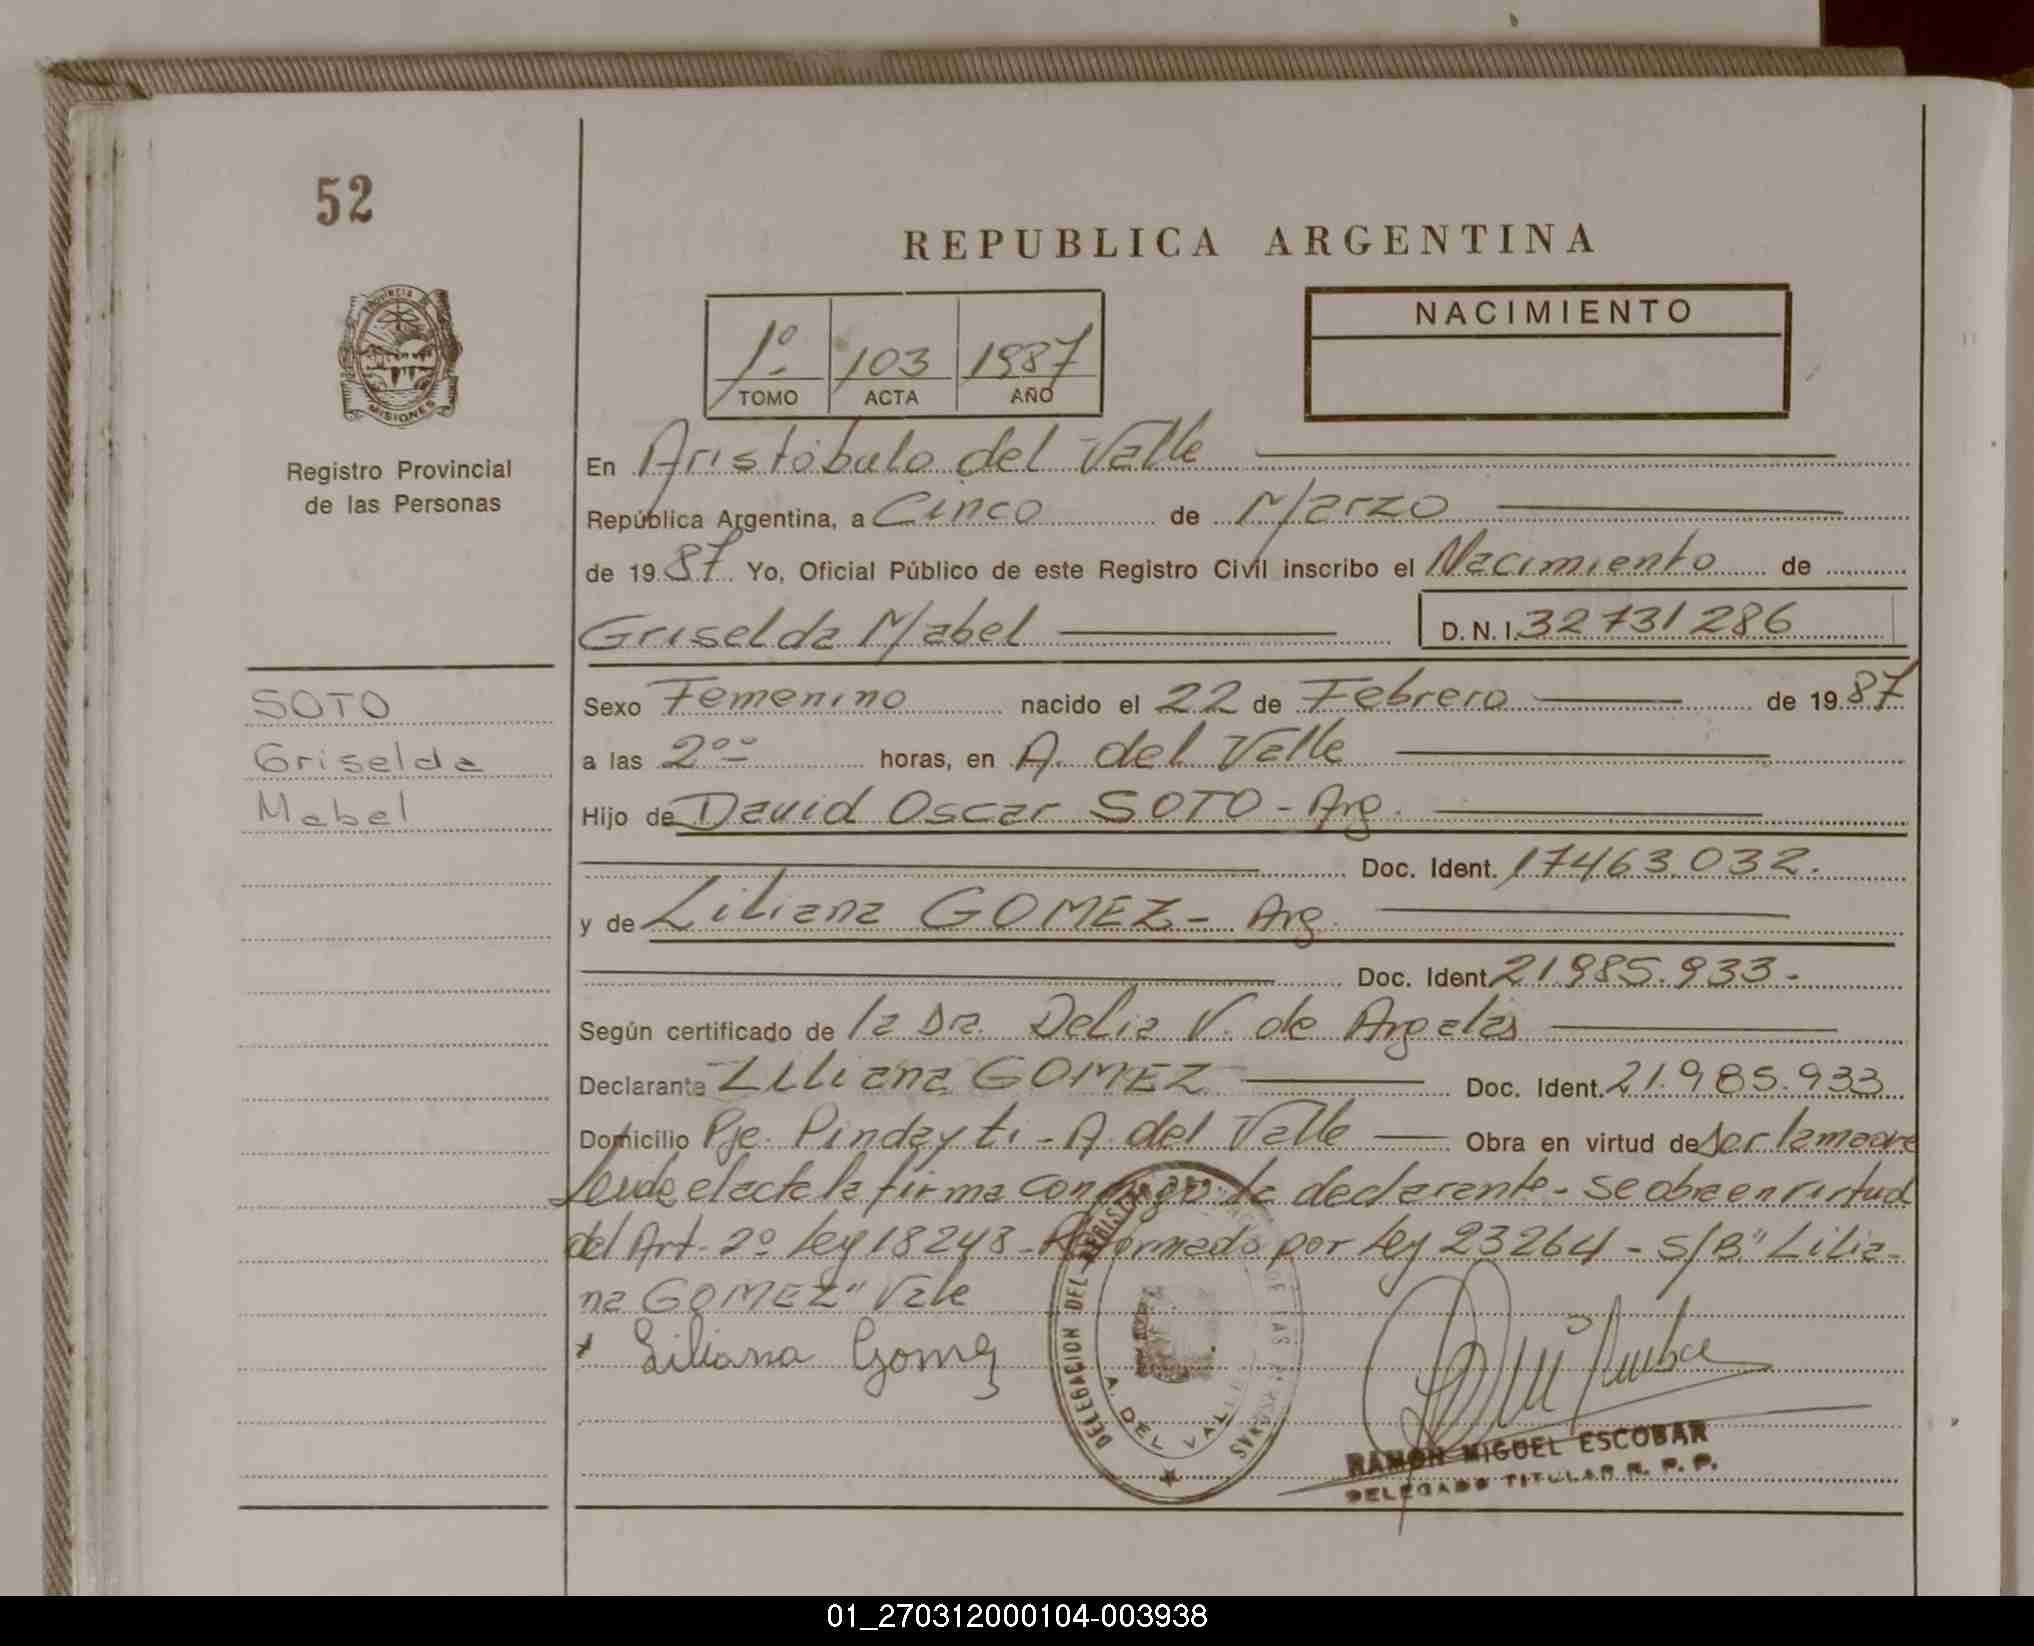 52
REPUBLICA ARGENTINA
NACIMIENTO
1º 103 1987
TOMO ACTA AÑO
PROVINCIA DE
MISIONES
Registro Provincial
de las Personas
En Aristóbulo del Valle
República Argentina, a Cinco de Marzo
de 1987 Yo, Oficial Público de este Registro Civil inscribo el Nacimiento de
Griselda Mabel D. N. I. 32731286
SOTO
Griselda
Mabel
Sexo Femenino nacido el 22 de Febrero de 1987
a las 2ºº horas, en A. del Valle
Hijo de David Oscar SOTO - Arg.
Doc. Ident. 17463.032.
y de Liliana GOMEZ - Arg.
Doc. Ident. 21.985.933-
Según certificado de la Dra. Delia V. de
Declarante Liliana GOMEZ Doc. Ident. 21.985.933
Domicilio Pje. Pindayti - A. del Valle Obra en virtud de ser la madre
Leida el acta la firma conmigo la declarante - se obra en virtud
del Art. 2º Ley 18248 - Reformado por Ley 23264 - S/B." Lilia-
na GOMEZ" Vale
Liliana Gomez
DELEGACION DEL REGISTRO DE LAS PERSONAS
A. DEL VALLE
RAMON MIGUEL ESCOBAR
DELEGADO TITULAR R. P. P.
01_270312000104-003938